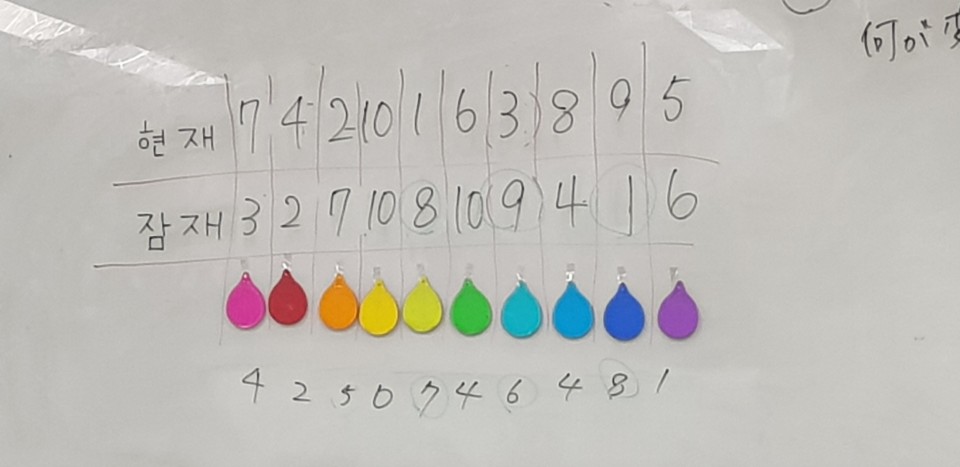 何が
현재 7 4 2 10 1 6 3 8 9 5
잠재 3 2 7 10 8 10 9 4 1 6
4 2 5 0 7 4 6 4 8 1